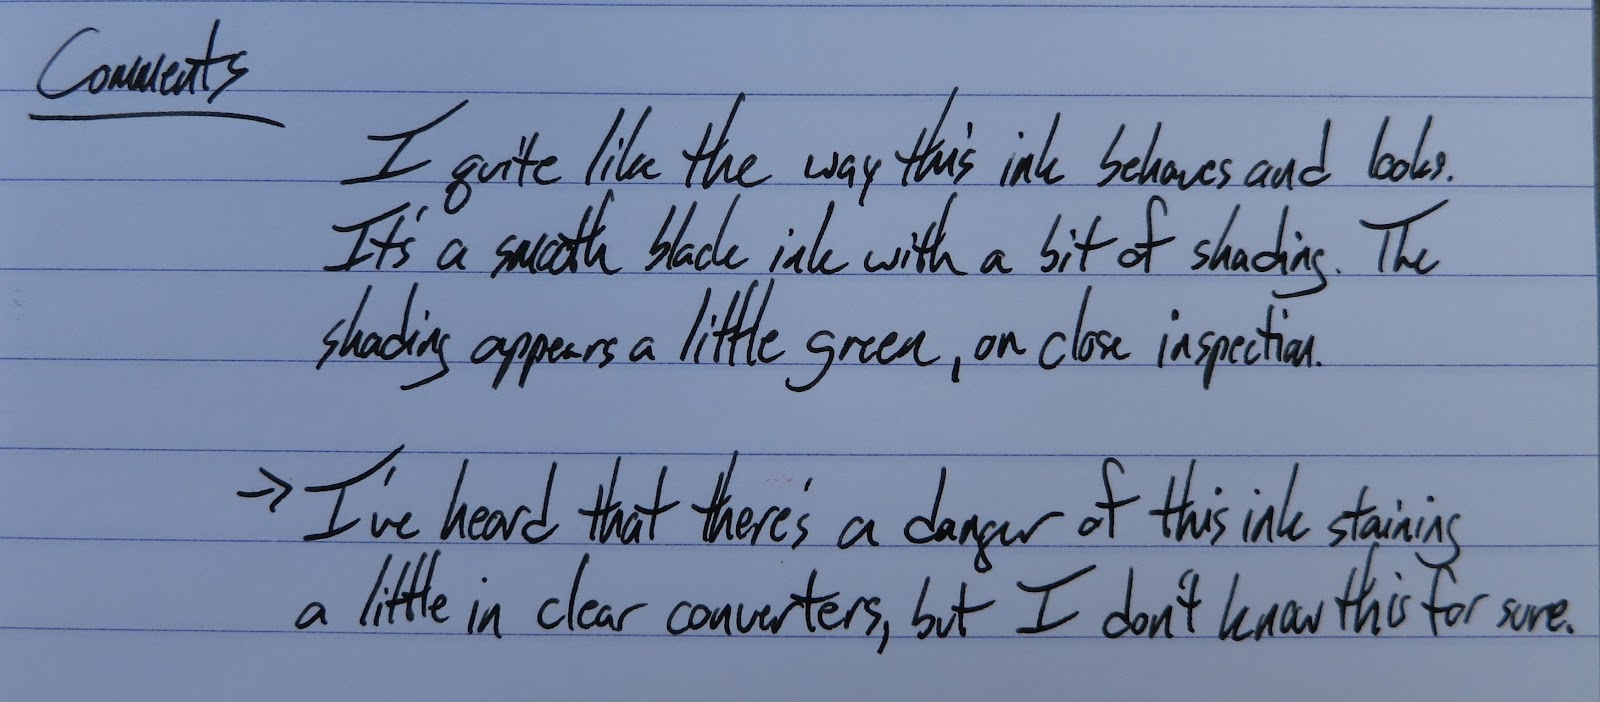 Comments
I quite like the way this ink behaves and looks.
It's a smooth black ink with a bit of shading. The
shading appears a little green, on close inspection.
→ I've heard that there's a danger of this ink staining
a little in clear converters, but I don't know this for sure.